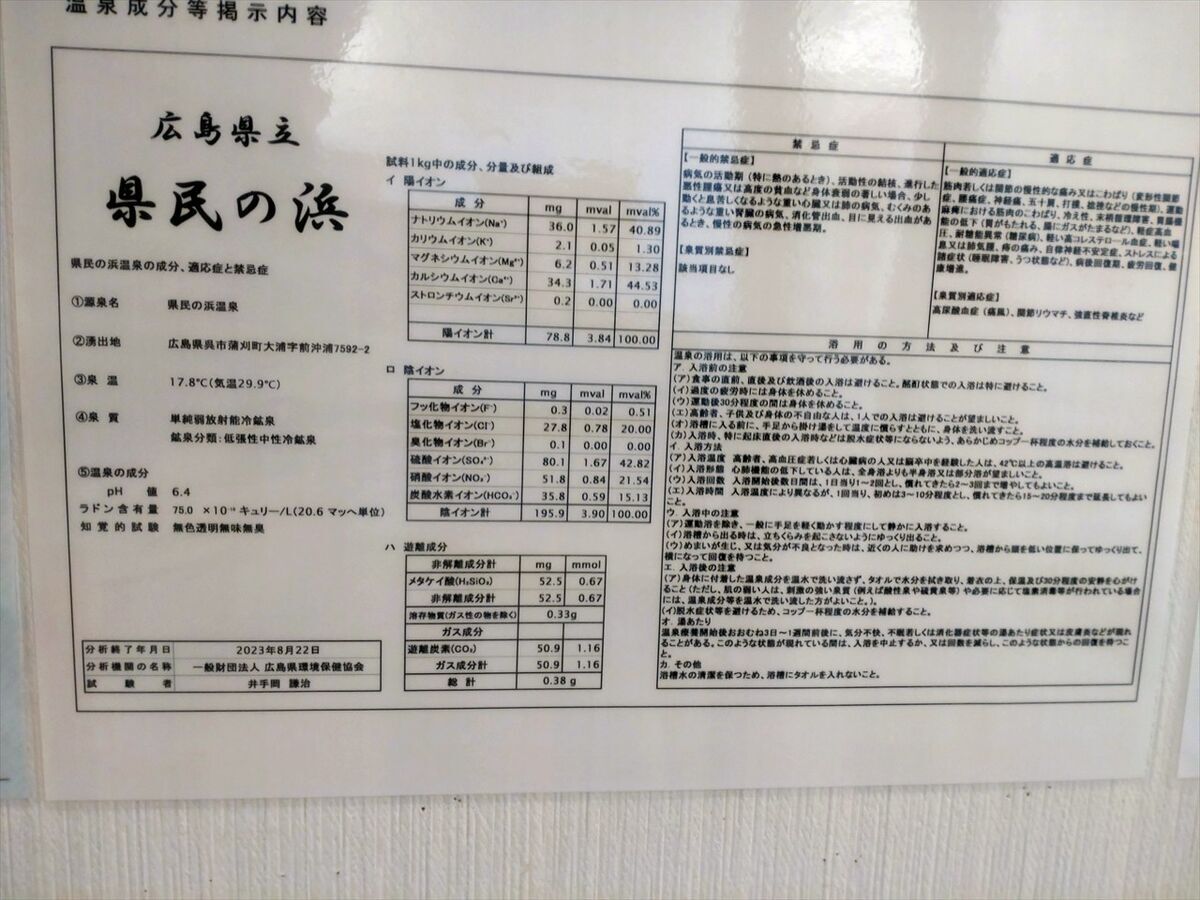 温泉成分等掲示内容
広島県立
県民の浜
県民の浜温泉の成分、適応症と禁忌症
①源泉名 県民の浜温泉
②湧出地 広島県呉市蒲刈町大浦字前沖浦7592-2
③泉 温 17.8℃(気温29.9℃)
④泉 質 単純弱放射能冷鉱泉
鉱泉分類:低張性中性冷鉱泉
⑤温泉の成分
pH 値 6.4
ラドン含有量 75.0 ×10 キュリー/L(20.6 マッヘ単位)
知覚的試験 無色透明無味無臭
分析終了年月日 2023年8月22日
分析機関の名称 一般財団法人 広島県環境保健協会
試験者 井手岡 謙治
試料1kg中の成分、分量及び組成
イ 陽イオン
成 分 mg mval mval%
ナトリウムイオン(Na⁺) 36.0 1.57 40.89
カリウムイオン(K⁺) 2.1 0.05 1.30
マグネシウムイオン(Mg²⁺) 6.2 0.51 13.28
カルシウムイオン(Ca²⁺) 34.3 1.71 44.53
ストロンチウムイオン(Sr²⁺) 0.2 0.00 0.00
陽イオン計 78.8 3.84 100.00
ロ 陰イオン
成 分 mg mval mval%
フッ化物イオン(F⁻) 0.3 0.02 0.51
塩化物イオン(Cl⁻) 27.8 0.78 20.00
臭化物イオン(Br⁻) 0.1 0.00 0.00
硫酸イオン(SO₄²⁻) 80.1 1.67 42.82
硝酸イオン(NO₃⁻) 51.8 0.84 21.54
炭酸水素イオン(HCO₃⁻) 35.8 0.59 15.13
陰イオン計 195.9 3.90 100.00
ハ 遊離成分
非解離成分計 mg mmol
メタケイ酸(H₂SiO₃) 52.5 0.67
非解離成分計 52.5 0.67
溶存物質(ガス性の物を除く) 0.33g
ガス成分
遊離炭素(CO₂) 50.9 1.16
ガス成分計 50.9 1.16
総 計 0.38 g
禁忌症
【一般的禁忌症】
病気の活動期(特に熱のあるとき)、活動性の結核、進行した
悪性腫瘍又は高度の貧血など身体衰弱の著しい場合、少し
動くと息苦しくなるような重い心臓又は肺の病気、むくみのあ
るような重い腎臓の病気、消化管出血、目に見える出血があ
るとき、慢性の病気の急性増悪期。
【泉質別禁忌症】
該当項目なし
適応症
【一般的適応症】
筋肉若しくは関節の慢性的な痛み又はこわばり(変形性関節
症、腰痛症、神経痛、五十肩、打撲、捻挫などの慢性期)、運動
麻痺における筋肉のこわばり、冷え性、末梢循環障害、胃腸機
能の低下(胃がもたれる、腸にガスがたまるなど)、軽症高血
圧、耐糖能異常(糖尿病)、軽い高コレステロール血症、軽い喘
息又は肺気腫、痔の痛み、自律神経不安定症、ストレスによる
諸症状(睡眠障害、うつ状態など)、病後回復期、疲労回復、健
康増進。
【泉質別適応症】
高尿酸血症(痛風)、関節リウマチ、強直性脊椎炎など
浴用の方法及び注意
温泉の浴用は、以下の事項を守って行う必要がある。
ア. 入浴前の注意
(ア)食事の直前、直後及び飲酒後の入浴は避けること。酩酊状態での入浴は特に避けること。
(イ)過度の疲労時には身体を休めること。
(ウ)運動後30分程度の間は身体を休めること。
(エ)高齢者、子供及び身体の不自由な人は、1人での入浴は避けることが望ましいこと。
(オ)浴槽に入る前に、手足から掛け湯をして温度に慣らすとともに、身体を洗い流すこと。
(カ)入浴時、特に起床直後の入浴時などは脱水症状等にならないよう、あらかじめコップ一杯程度の水分を補給しておくこと。
イ. 入浴方法
(ア)入浴温度 高齢者、高血圧症若しくは心臓病の人又は脳卒中を経験した人は、42℃以上の高温浴は避けること。
(イ)入浴形態 心肺機能の低下している人は、全身浴よりも半身浴又は部分浴が望ましいこと。
(ウ)入浴回数 入浴開始後数日間は、1日当り1~2回とし、慣れてきたら2~3回まで増やしてもよいこと。
(エ)入浴時間 入浴温度により異なるが、1回当り、初めは3~10分程度とし、慣れてきたら15~20分程度まで延長してもよい
こと。
ウ. 入浴中の注意
(ア)運動浴を除き、一般に手足を軽く動かす程度にして静かに入浴すること。
(イ)浴槽から出る時は、立ちくらみを起こさないようにゆっくり出ること。
(ウ)めまいが生じ、又は気分が不良となった時は、近くの人に助けを求めつつ、浴槽から頭を低い位置に保ってゆっくり出て、
横になって回復を待つこと。
エ. 入浴後の注意
(ア)身体に付着した温泉成分を温水で洗い流さず、タオルで水分を拭き取り、着衣の上、保温及び30分程度の安静を心がけ
ること(ただし、肌の弱い人は、刺激の強い泉質(例えば酸性泉や硫黄泉等)や必要に応じて塩素消毒等が行われている場合
には、温泉成分等を温水で洗い流した方がよいこと。)。
(イ)脱水症状等を避けるため、コップ一杯程度の水分を補給すること。
オ. 湯あたり
温泉療養開始後おおむね3日~1週間前後に、気分不快、不眠若しくは消化器症状等の湯あたり症状又は皮膚炎などが現れ
ることがある。このような状態が現れている間は、入浴を中止するか、又は回数を減らし、このような状態からの回復を待つこ
と。
カ. その他
浴槽水の清潔を保つため、浴槽にタオルを入れないこと。